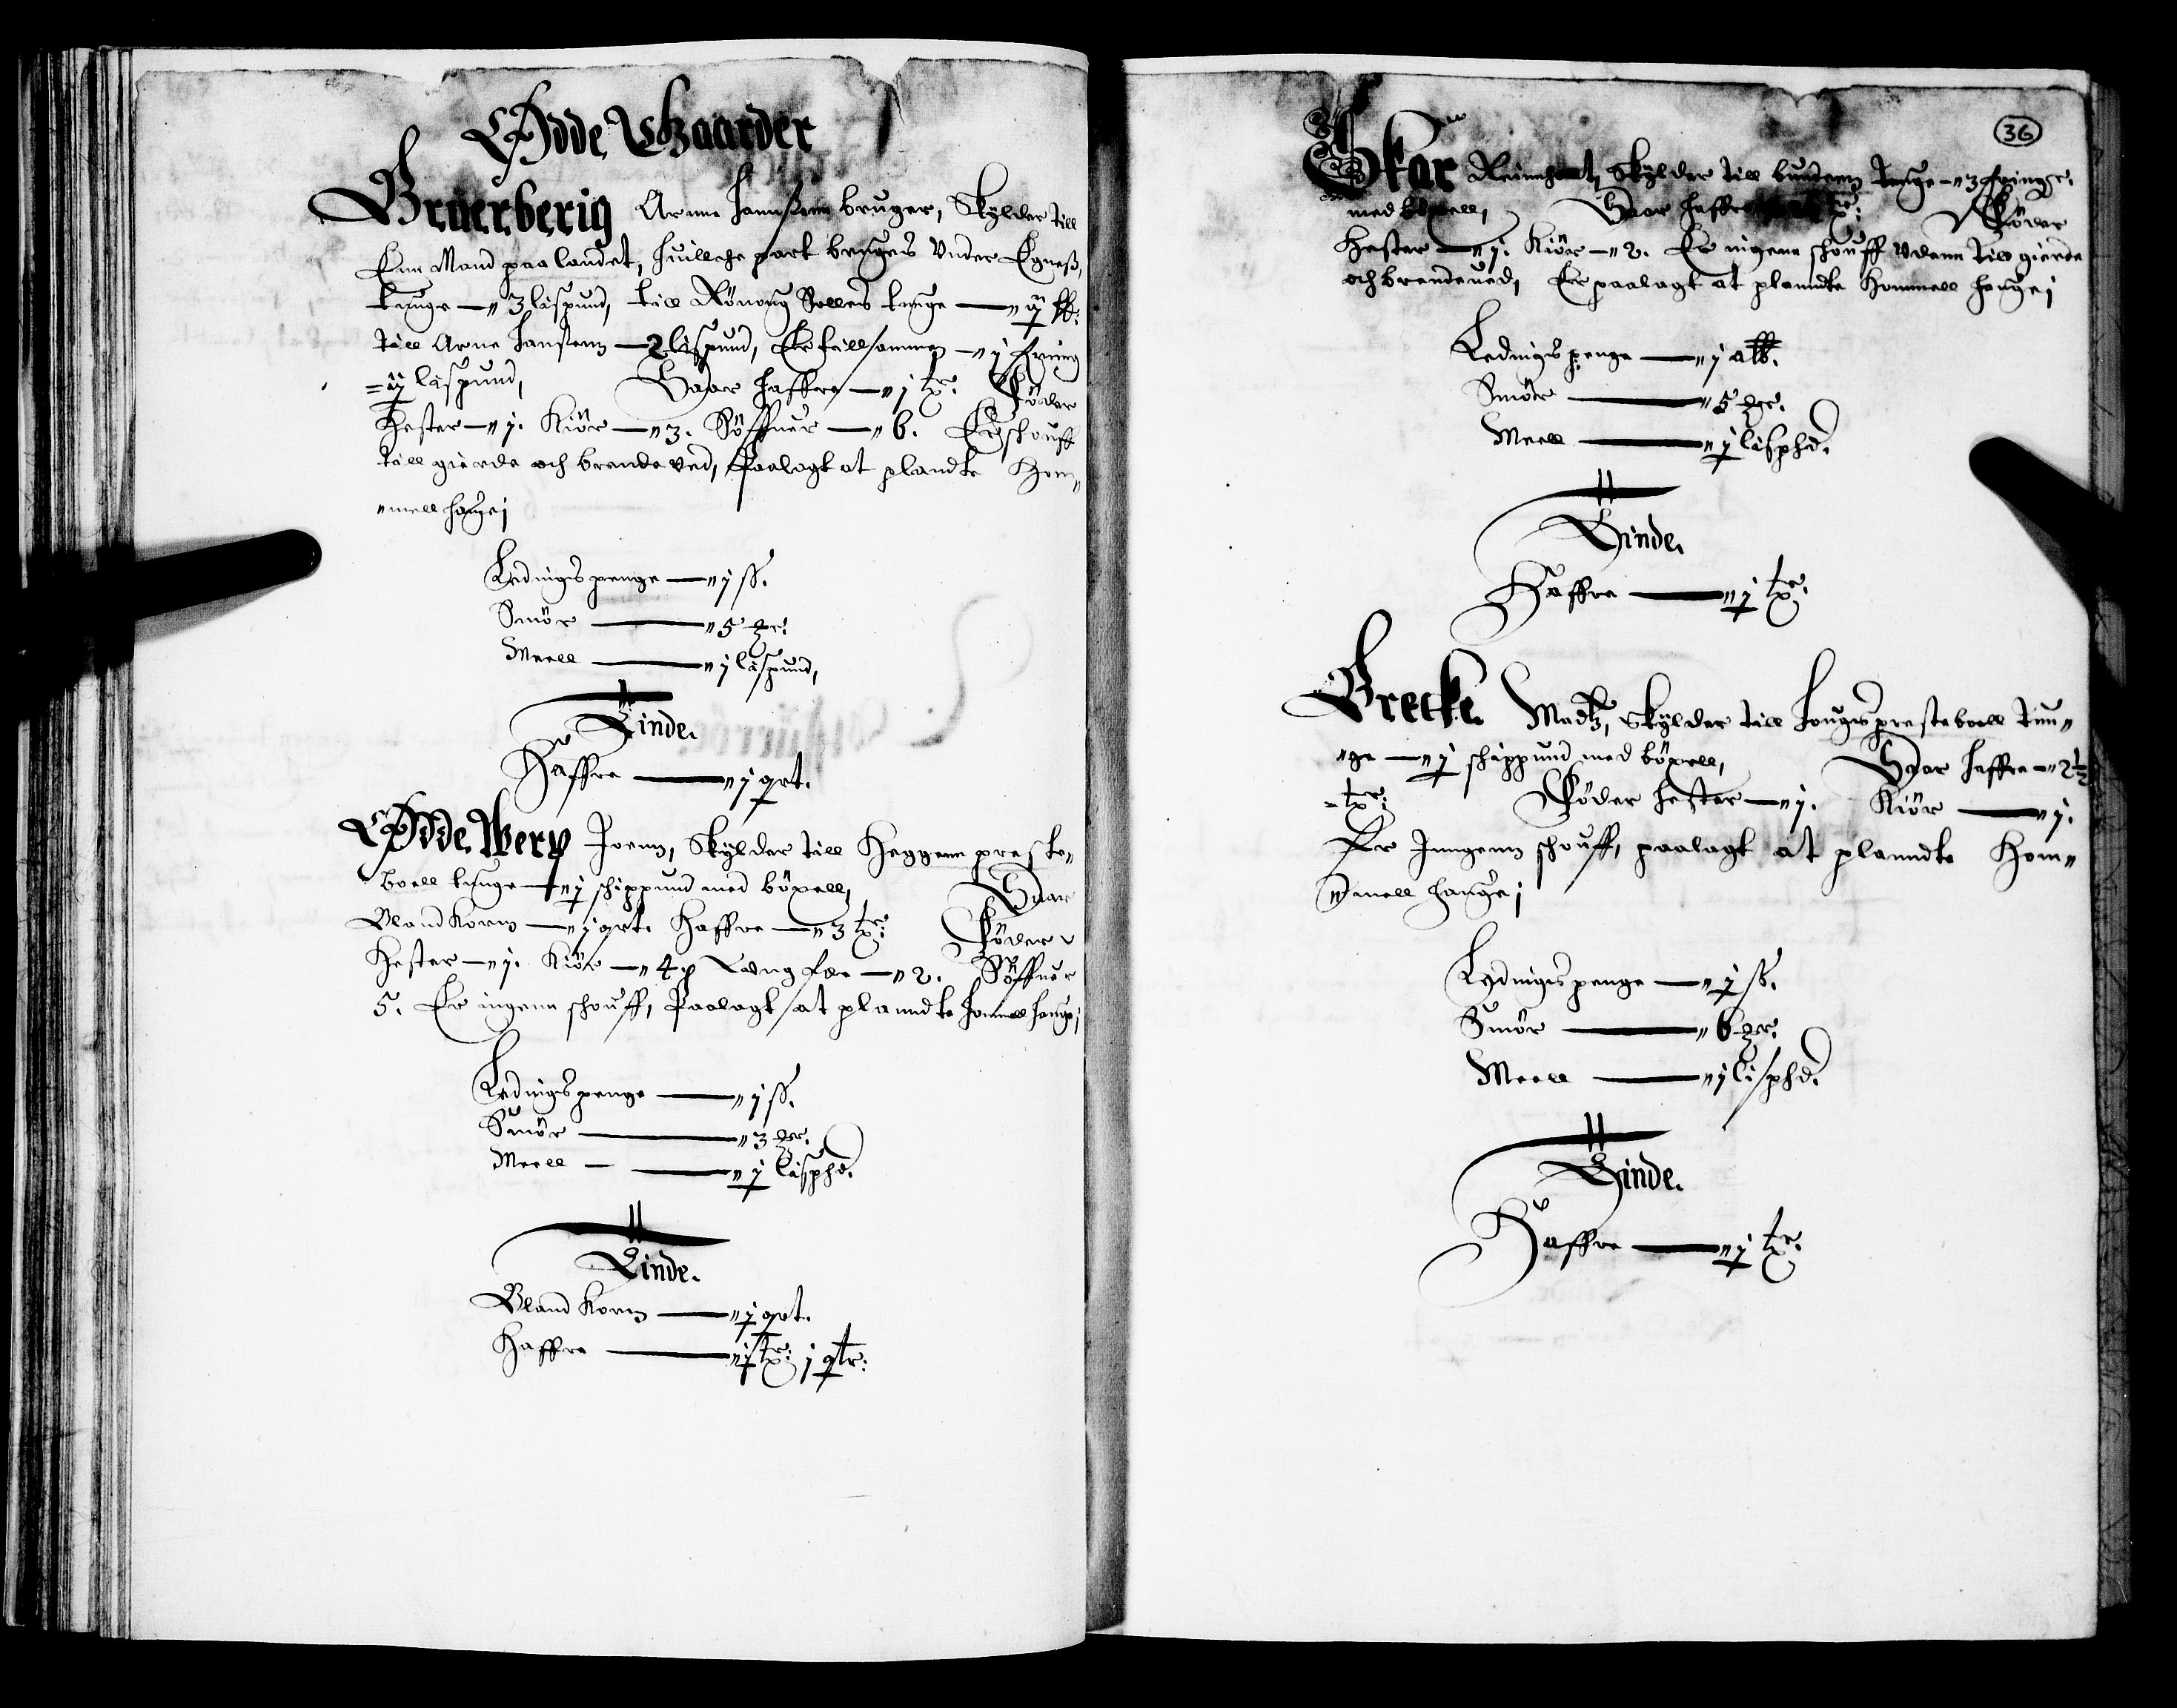 Ødde Gaarder
Bruerberig Arne Hanßenn bruger, Skylder till
Enn Mand paa landet, huilche part bruges Vnder Egneß,
tunge — 3 lispund, till Rönoug Sollers tunge —
till Arne Hanßenn — 2 lispund, Er tillsammen — j hring
lispund, Saar haffre — j tr: Föder
Hester — j. Kiör — 3. Söffuer — 6. Er schouff
till gierde och brende ved, Paalagt at plandte Hom„
„mell hauge;
Ledingspenge — j ß.
Smör — 5
Meell — j lispund,
Tinde.
Haffre — j qrt.
Ødde Wery Joenn, Skylder till Heggenn preste„
boell tunge — j schippund med böxell, Saar
Bland Korn — j qrt. Haffre — 3 tr: Föder
Hester — j. Kiör — 4 Vng fæe — 2. Söffuer
5. Er ingenn schouff, Paalagt at planndte hommell hauge;
Ledingspenge — j ß.
Smör — 3
Meell — j lisphd.
Tinde.
Bland Korn — j qrt.
Haffre — j tr: j qtr:
36
Skar Reinhart, Skylder till bundenn tunge — 3
med böxell, Saar haffre tr: Föder
Hester — j. Kiör — 2. Er ingenn schouff vdenn till gierde
och brendeued, Er paalagt at planndte Hommell hauge;
Ledingspenge — j alb.
Smör — 5
Meell — j lisphd.
Tinde.
Haffre — j tr:
Brecke Madtz, Skylder till Hougs presteboell tun„
„ge — j schippund med böxell, Saar haffre — 2½
tr: Föder hester — j. Kiör — j.
Er Inngenn schouff, paalagt at planndte Hom„
„mell hauge;
Ledingspenge — j ß.
Smör — 6
Meell — j lisphd.
Tinde.
Haffre — j tr: